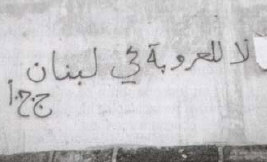 لا للعروبة في لبنان
ج.ج.أ